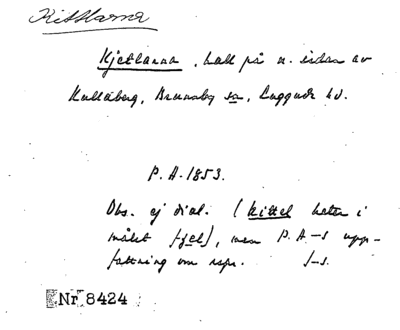 Kittlarna
Kjetlarna, hall på n. sidan av
Kullaberg, Brunnby sn, Luggude hd.
P. A. 1853.
Obs. ej dial. (kittel heter i
målet tjel), men P. A-s upp-
fattning om uspr. J-s.
Nr 8424